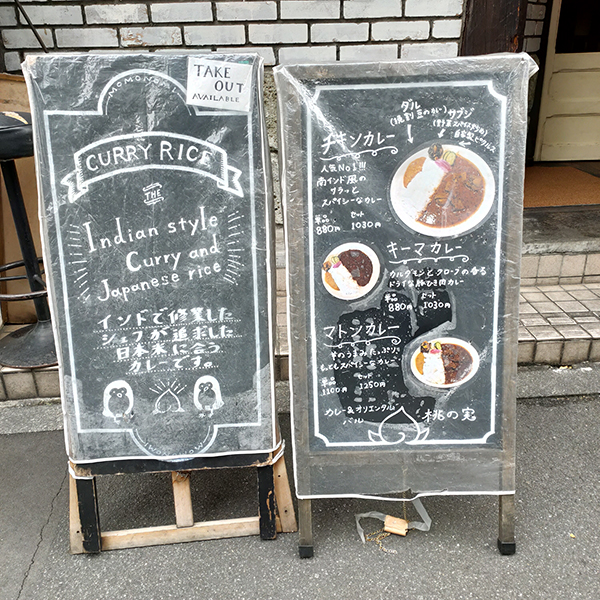 MOMONOMI
TAKE
OUT
AVAILABLE
CURRY RICE
THE
Indian style
Curry and
Japanese rice
インドで修業した
シェフが追求した
日本米に合う
カレーです。
MOMONOMI
ダル
(挽割豆のカレー)
サブジ
(野菜スパイス炒め)
自家製ピクルス
チキンカレー
人気No1!!!
南インド風の
サラッと
スパイシーなカレー
単品 セット
880円 1030円
キーマカレー
カルダモンとクローブの香る
ドライな豚ひき肉カレー
単品 セット
880円 1030円
マトンカレー
羊のうまみたっぷり!
スパイシーなカレー
単品 セット
1100円 1250円
カレー&オリエンタル
バル
桃の実